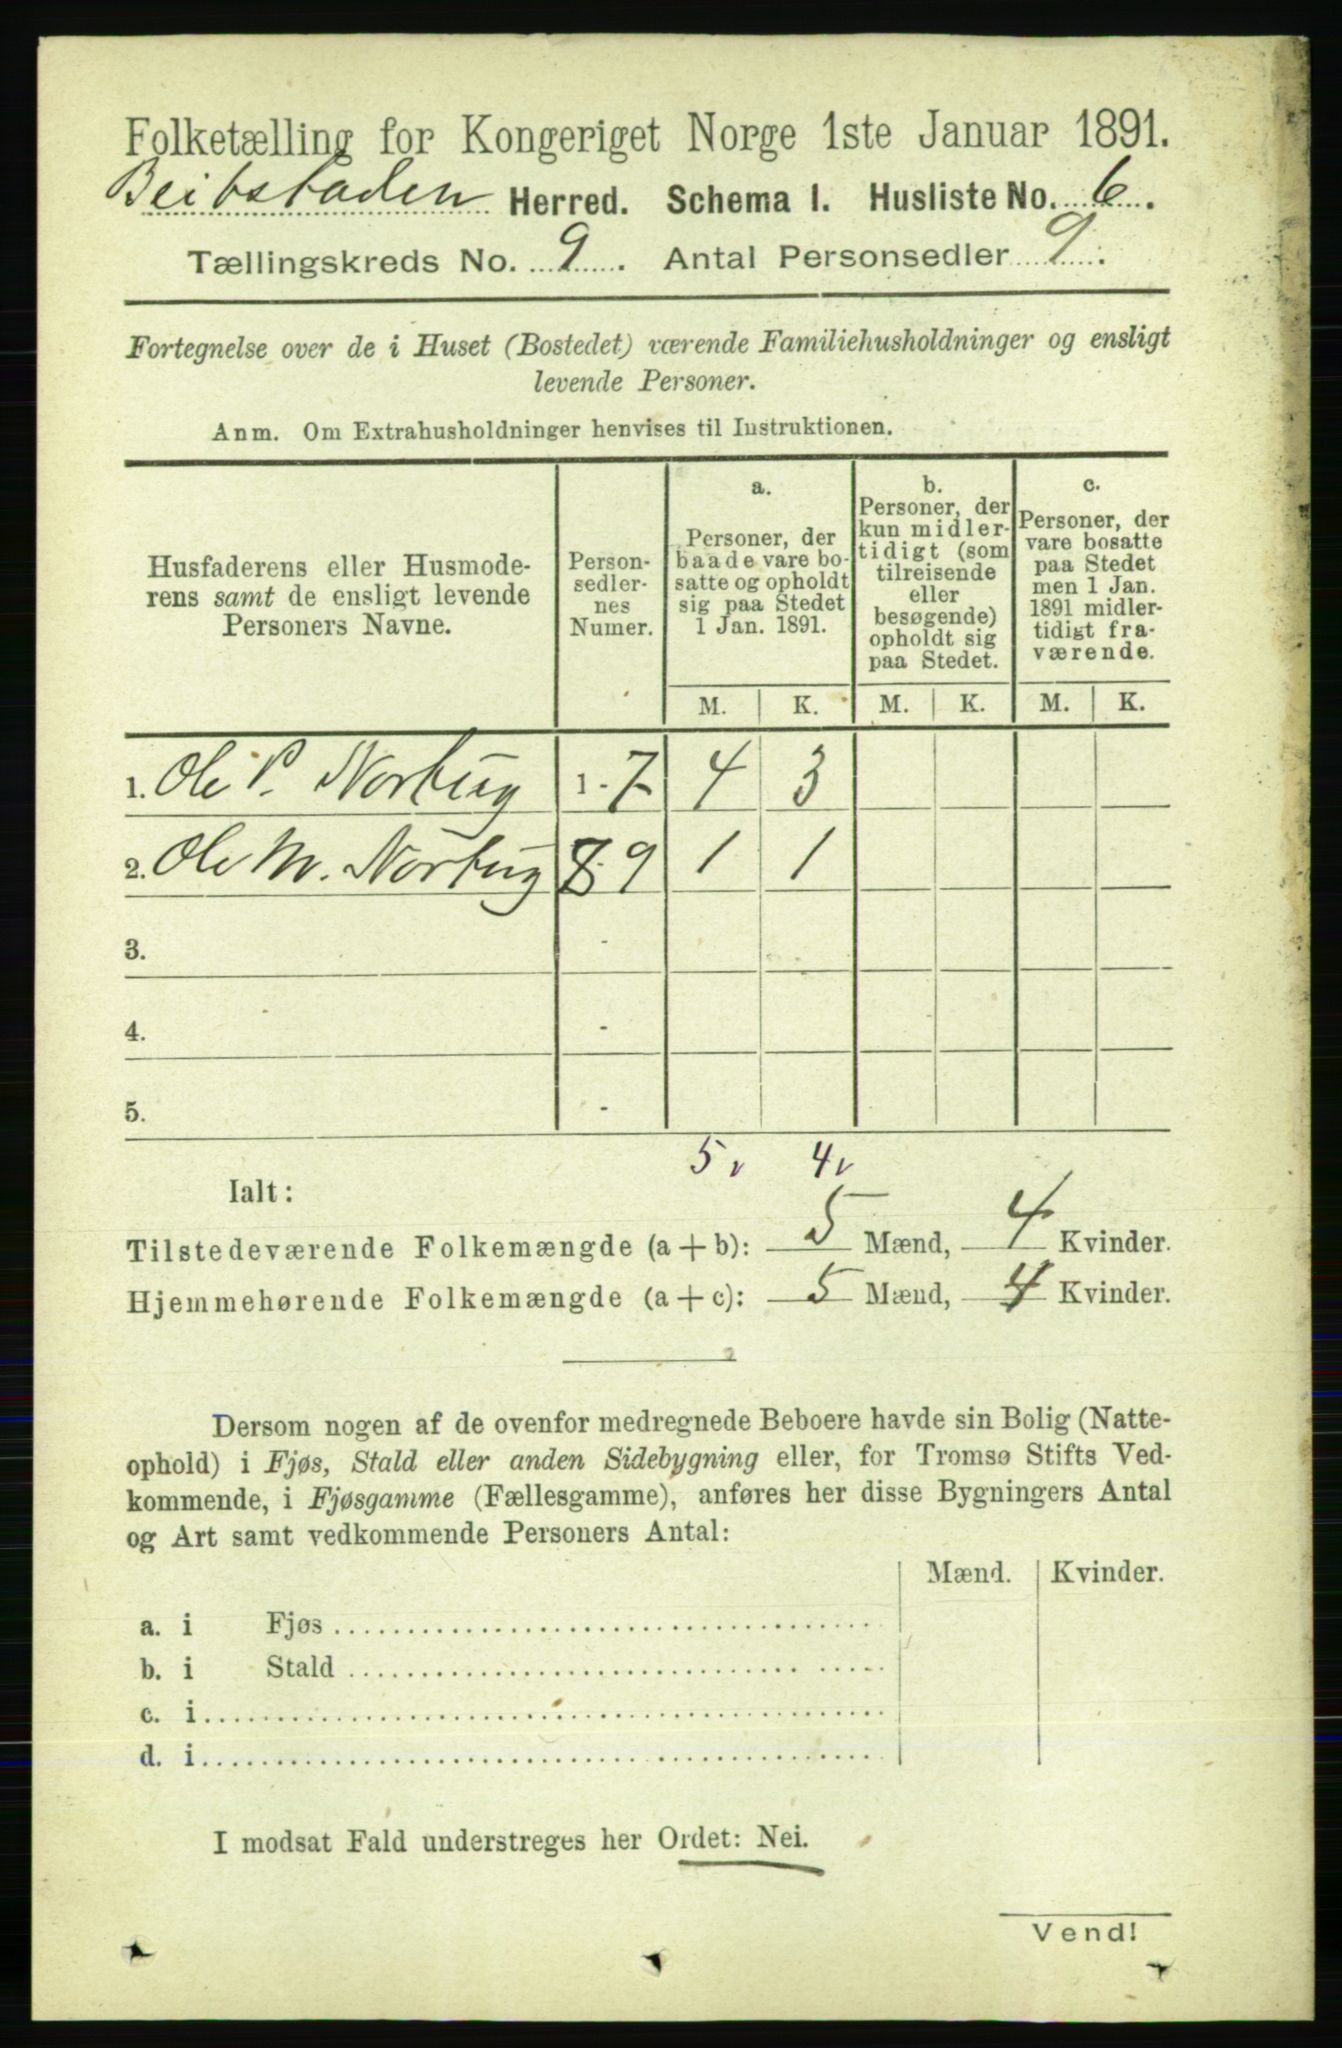 Folketælling for Kongeriget Norge 1ste Januar 1891.
Beitstaden Herred. Schema I. Husliste No. 6.
Tællingskreds No. 9. Antal Personsedler 9.
Fortegnelse over de i Huset (Bostedet) værende Familiehusholdninger og ensligt
levende Personer.
Anm. Om Extrahusholdninger henvises til Instruktionen.
Husfaderens eller Husmode-
rens samt de ensligt levende
Personers Navne.
Person-
sedler-
nes
Numer.
a.
Personer, der
baade vare bo-
satte og opholdt
sig paa Stedet
1 Jan. 1891.
b.
Personer, der
kun midler-
tidigt (som
tilreisende
eller
besøgende)
opholdt sig
paa Stedet.
c.
Personer, der
vare bosatte
paa Stedet
men 1 Jan.
1891 midler-
tidigt fra-
værende.
M. K. M. K. M. K.
1. Ole P. Norbug 1 - 7 4 3
2. Ole M. Norbug 8 - 9 1 1
3. -
4. -
5. -
5 v 4 v
Ialt:
Tilstedeværende Folkemængde (a + b): 5 Mænd, 4 Kvinder.
Hjemmehørende Folkemængde (a + c): 5 Mænd, 4 Kvinder.
Dersom nogen af de ovenfor medregnede Beboere havde sin Bolig (Natte-
ophold) i Fjøs, Stald eller anden Sidebygning eller, for Tromsø Stifts Ved-
kommende, i Fjøsgamme (Fællesgamme), anføres her disse Bygningers Antal
og Art samt vedkommende Personers Antal:
Mænd. Kvinder.
a. i Fjøs
b. i Stald
c. i
d. i
I modsat Fald understreges her Ordet: Nei.
Vend!